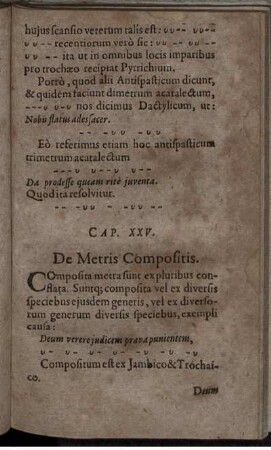 hujus scansio veterum talis est: υυ--υυ-
υυ--- recentiorum verò sic: υυ--υυ
--- ita ut in omnibus locis imparibus
pro trochæo recipiat Pyrrichium.
Porrò, quod alii Antispasticum dicunt,
& quidem faciunt dimetrum acatalectum,
---υυ-υυ nos dicimus Dactylicum, ut:
Nobis flatus ades sacer.
-- -υυ -υυ
Eò referimus etiam hoc antispasticum
trimetrum acatalectum
---υυ--υυ-υυ
Da prodesse queam ritè juventa.
Quod ita resolvitur.
-- -υυ - -υυ -υυ
CAP. XXV.
De Metris Compositis.
COmposita metra sunt ex pluribus con-
flata. Suntq; composita vel ex diversis
speciebus ejusdem generis, vel ex diverso-
rum generum diversis speciebus, exempli
causa:
Deum verere judicem prava punientem,
υ- υ- υ- υ- -υ -υ --
Compositum est ex Jambico & Trochai-
co.
Deum